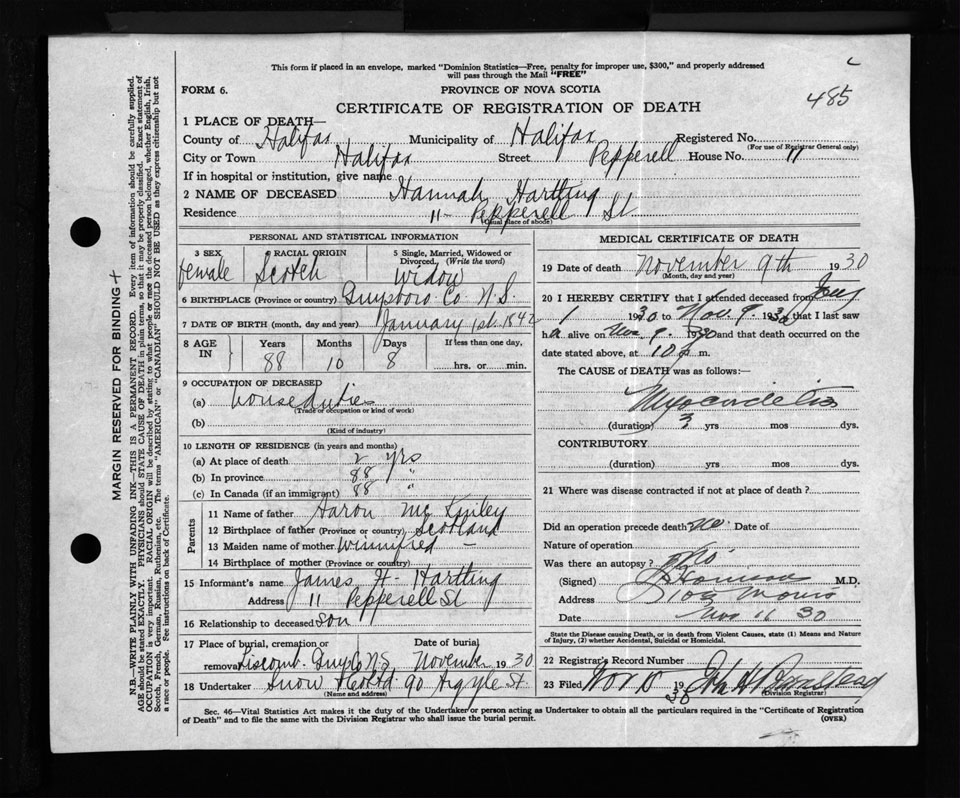 This form if placed in an envelope, marked "Dominion Statistics—Free, penalty for improper use, $300," and properly addressed
will pass through the Mail "FREE"
FORM 6.
PROVINCE OF NOVA SCOTIA
485
CERTIFICATE OF REGISTRATION OF DEATH
1 PLACE OF DEATH—
County of Halifax Municipality of Halifax Registered No.
(For use of Registrar General only)
City or Town Halifax Street Pepperell House No. 11
If in hospital or institution, give name
2 NAME OF DECEASED Hannah Hartling
Residence 11- Pepperell St
(Usual place of abode)
PERSONAL AND STATISTICAL INFORMATION
3 SEX female
4 RACIAL ORIGIN Scotch
5 Single, Married, Widowed or Divorced, (Write the word) Widow
6 BIRTHPLACE (Province or country) Guysboro Co N.S.
7 DATE OF BIRTH (month, day and year) January 1st. 1842
8 AGE IN Years Months Days If less than one day,
88 10 8 hrs. or min.
9 OCCUPATION OF DECEASED
(a) houseduties
(Trade or occupation or kind of work)
(b)
(Kind of industry)
10 LENGTH OF RESIDENCE (in years and months)
(a) At place of death 2 yrs
(b) In province 88 "
(c) In Canada (if an immigrant) 88 "
Parents
11 Name of father Aaron
12 Birthplace of father (Province or country) Scotland
13 Maiden name of mother Winnifred —
14 Birthplace of mother (Province or country)
15 Informant's name James H- Hartling
Address 11 Pepperell St
16 Relationship to deceased Son
17 Place of burial, cremation or Date of burial
removal Liscomb. Guys Co N.S. November 1930
18 Undertaker Snow & Co Ltd 90 Argyle St
(Name and address)
MEDICAL CERTIFICATE OF DEATH
19 Date of death November 9th 1930
(Month, day and year)
20 I HEREBY CERTIFY that I attended deceased from
1 1930 to Nov. 9 1930 that I last saw
h alive on Nov. 9 1930 and that death occurred on the
date stated above, at 10 p m.
The CAUSE of DEATH was as follows:—
Myocarditis
(duration) 3 yrs mos dys.
CONTRIBUTORY
(duration) yrs mos dys.
21 Where was disease contracted if not at place of death?
Did an operation precede death no. Date of
Nature of operation
Was there an autopsy? No.
(Signed) M.D.
Address Morris
Date Nov 30
State the Disease causing Death, or in death from Violent Causes, state (1) Means and Nature
of Injury, (2) whether Accidental, Suicidal or Homicidal.
22 Registrar's Record Number
23 Filed Nov 1930
(Division Registrar)
Sec. 46—Vital Statistics Act makes it the duty of the Undertaker or person acting as Undertaker to obtain all the particulars required in the "Certificate of Registration
of Death" and to file the same with the Division Registrar who shall issue the burial permit.
(OVER)
MARGIN RESERVED FOR BINDING
N.B.—WRITE PLAINLY WITH UNFADING INK—THIS IS A PERMANENT RECORD. Every item of information should be carefully supplied.
AGE should be stated EXACTLY. PHYSICIANS should STATE CAUSE OF DEATH in plain terms, so that it may be properly classified. Exact statement of
OCCUPATION is very important. RACIAL ORIGIN will be described by stating to what people or race the deceased person belonged, whether English, Irish,
Scotch, French, German, Russian, Ruthenian, etc. The terms "AMERICAN" or "CANADIAN" SHOULD NOT BE USED as they express citizenship but not
a race or people. See instructions on back of Certificate.